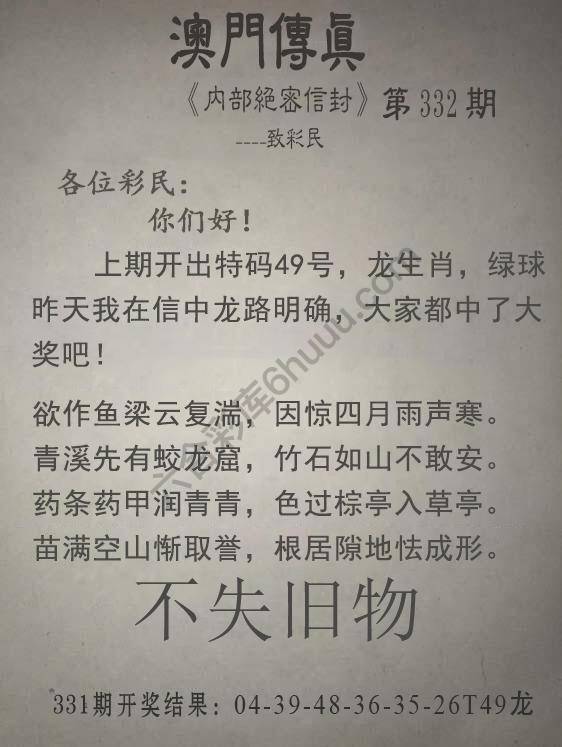 澳門傳眞
《内部絕密信封》第332期
----致彩民
各位彩民：
你们好！
上期开出特码49号，龙生肖，绿球
昨天我在信中龙路明确，大家都中了大
奖吧！
欲作鱼梁云复湍，因惊四月雨声寒。
青溪先有蛟龙窟，竹石如山不敢安。
药条药甲润青青，色过棕亭入草亭。
苗满空山惭取誉，根居隙地怯成形。
不失旧物
331期开奖结果：04-39-48-36-35-26T49龙
六合彩库6huuu.com